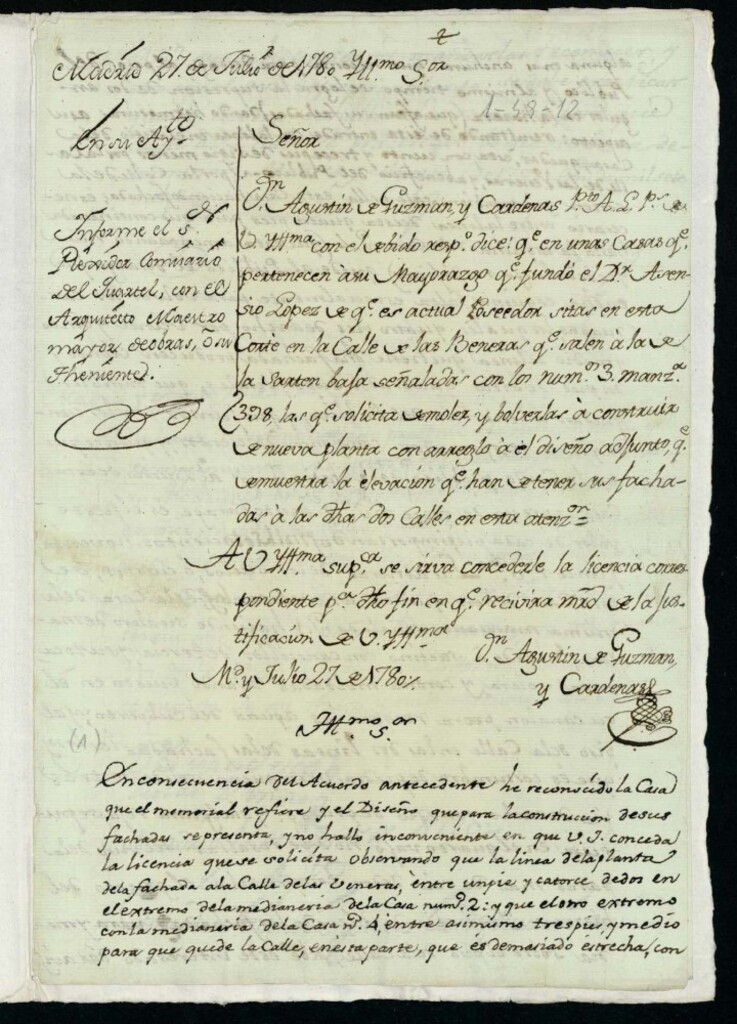 Madrid 27 de Julio de 1780 Yllmo Sor
1-48-12
En su Ayto
Señor
Dn Agustin de Guzman, y Cardenas Pto A L Ps de
V. Yllma con el debido respo. dice: qe en unas Casas qe.
pertenecen à su Mayorazgo qe. fundó el Dr. Asen-
sio Lopez de qe. es actual Poseedor sitas en esta
Corte en la Calle de las Beneras qe. salen à la de
la Sarten baja señaladas con los numo. 3. manza.
398, las qe. solicita demoler, y bolverlas à construir
de nueva planta con arreglo à el diseño adjunto, qe.
demuestra la èlevacion qe. han de tener sus facha-
das à las dhas dos Calles en esta atenzon=
Informe el Sor.
Rexidor Comisario
del Quartel, con el
Arquitecto Maestro
mayor de obras, ò su
theniente.
A V. Yllma supca se sirva concederle la licencia corres-
pondiente pa. dho fin en qe. recivira mrd de la jus-
tificacion de V. Yllma
Md. y Julio 27 de 1780.
Dn. Agustin de Guzman,
y Cardenas
Yllmo Sor
(1)
En consecuencia del Acuerdo antecedente he reconocido la Casa
que el memorial refiere y el Diseño que para la construcion de sus
fachadas representa, y no hallo inconveniente en que V. I. conceda
la licencia que se solicita observando que la linea de la planta
de la fachada a la Calle de las Veneras, èntre un pie y catorce dedos en
el extremo de la medianeria de la Casa numo. 2: y que el otro extremo
con la medianeria de la Casa no. 4, èntre asimismo tres pies, y medio
para que quede la Calle, en èsta parte, que ès demasiado èstrecha, con